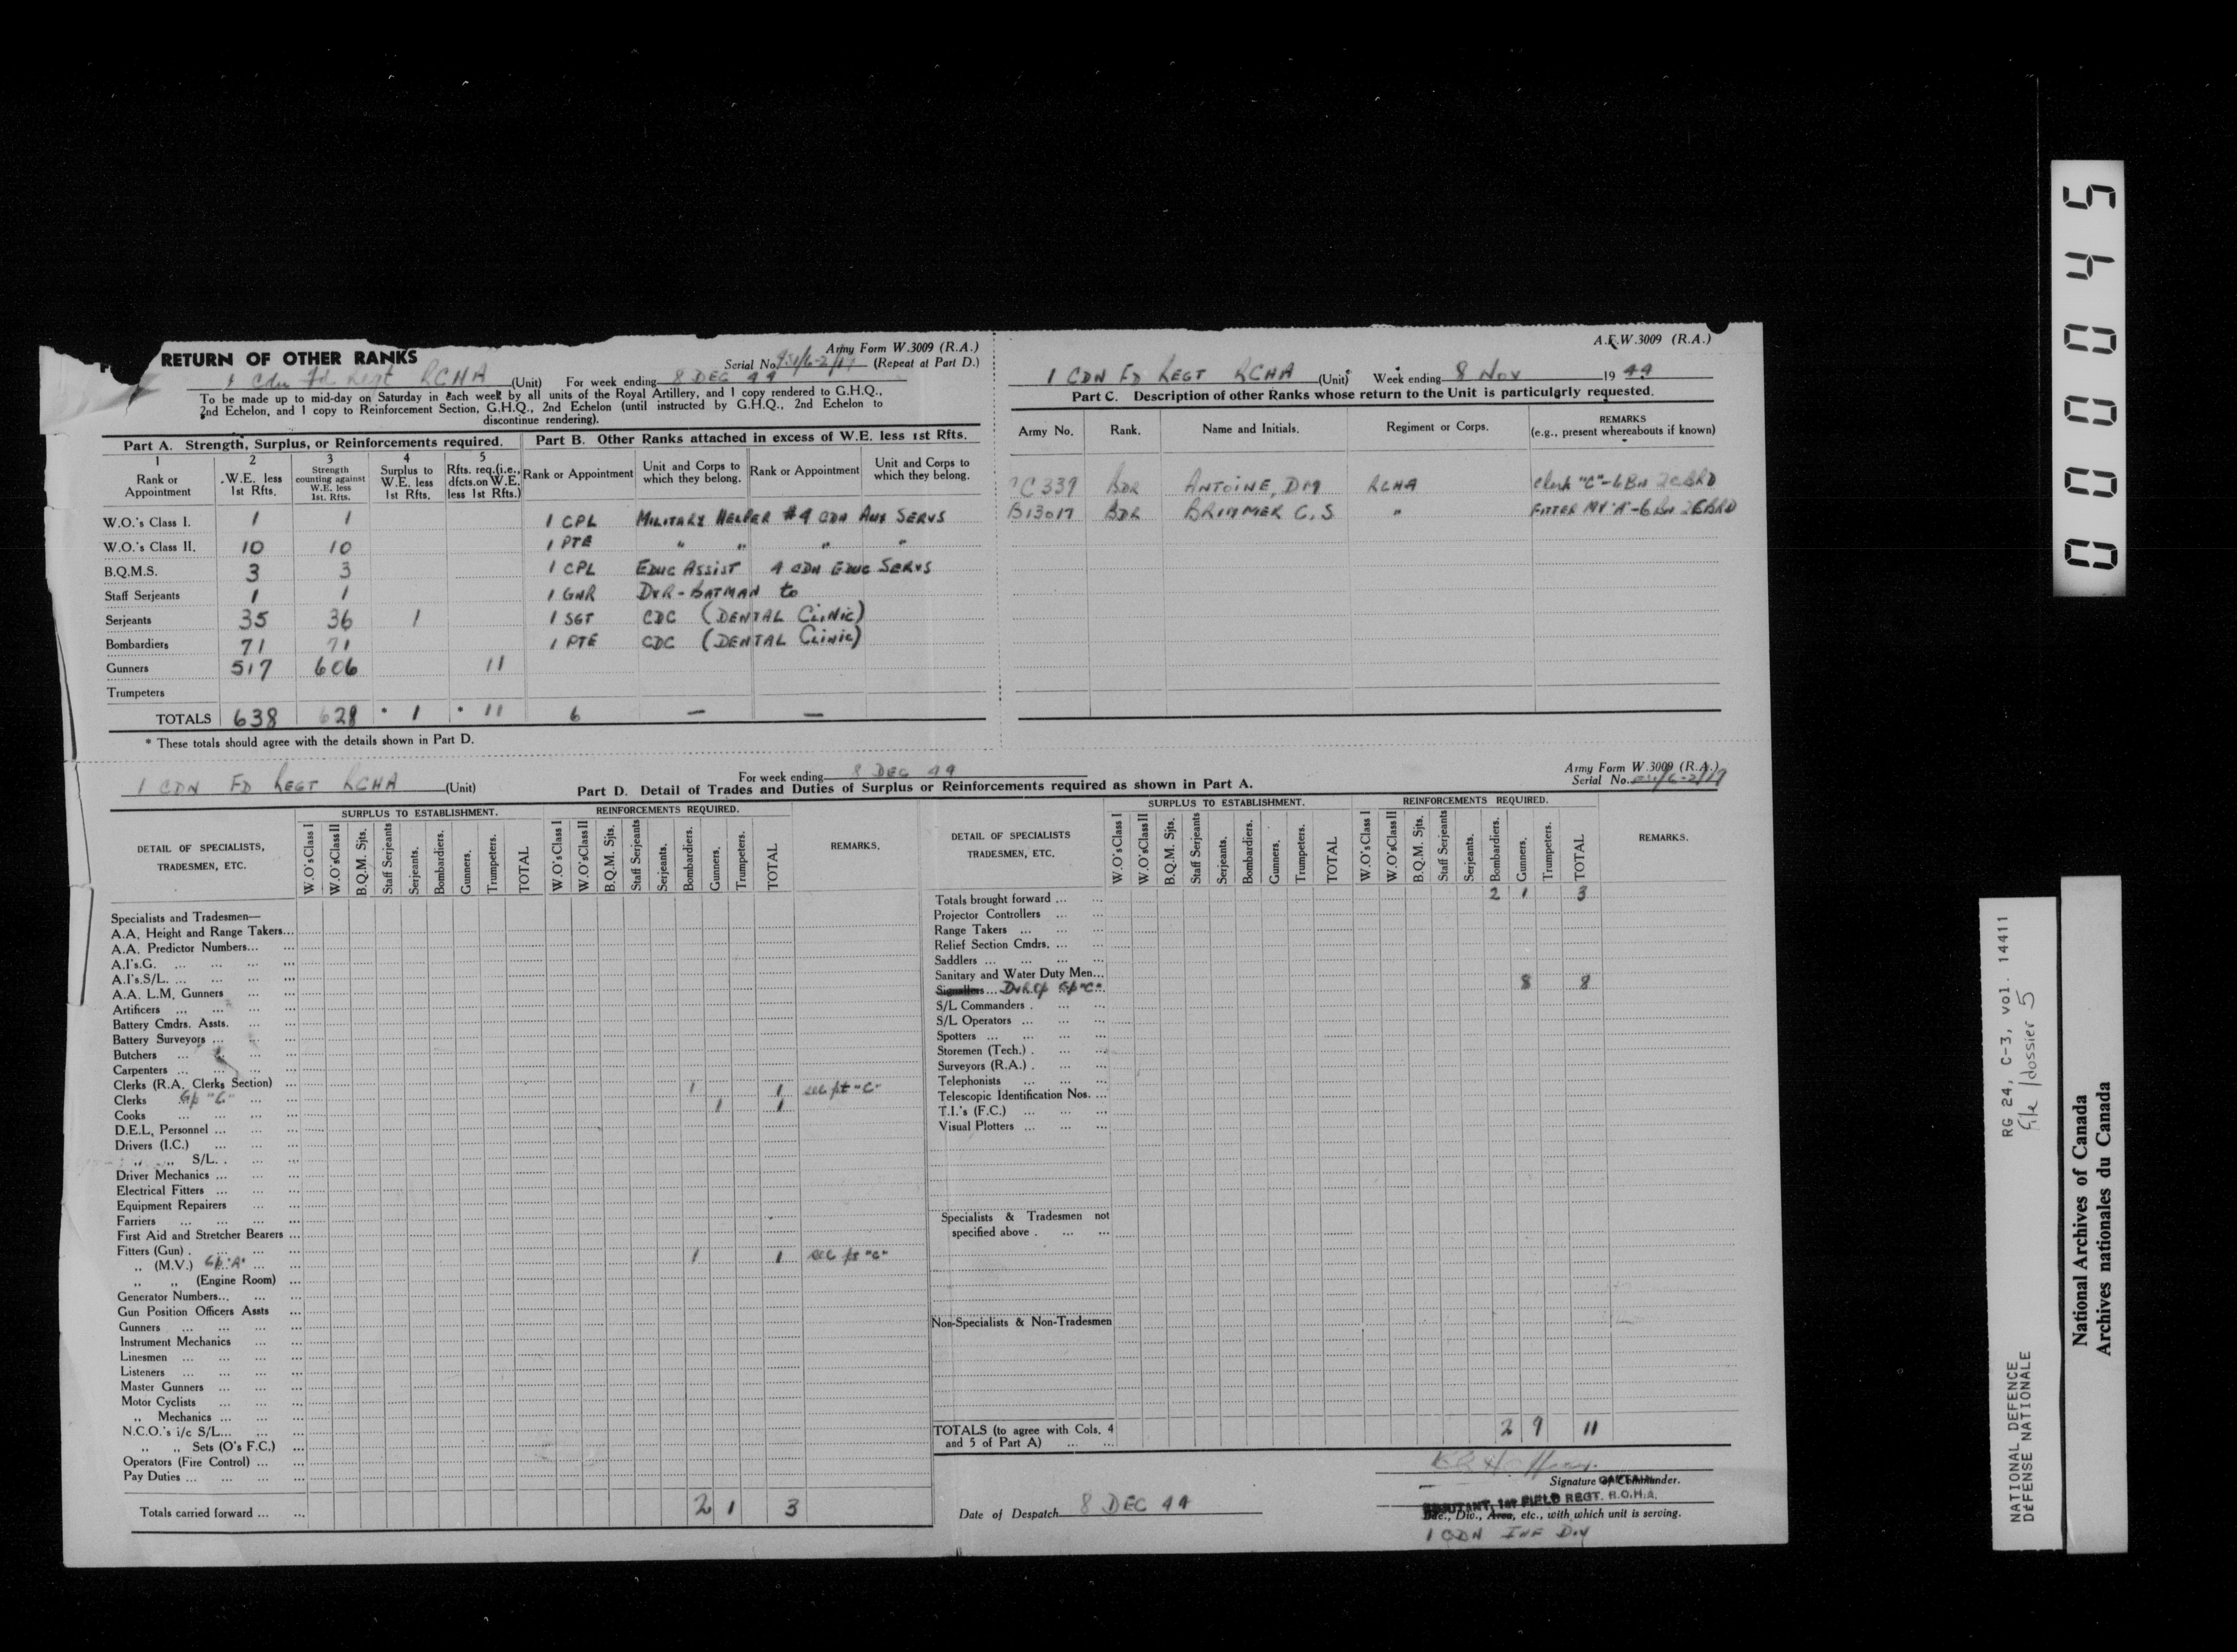 RETURN OF OTHER RANKS
Army Form W.3009 (R.A.)
Serial No. (Repeat at Part D.)
1 Cdn Fd Regt RCHA (Unit) For week ending 8 DEC 44
To be made up to mid-day on Saturday in each week by all units of the Royal Artillery, and 1 copy rendered to G.H.Q.,
2nd Echelon, and 1 copy to Reinforcement Section, G.H.Q., 2nd Echelon (until instructed by G.H.Q., 2nd Echelon to
discontinue rendering).
Part A. Strength, Surplus, or Reinforcements required.
1 2 3 4 5
Rank or Appointment
W.E. less 1st Rfts.
Strength counting against W.E. less 1st. Rfts.
Surplus to W.E. less 1st Rfts.
Rfts. req.(i.e., dfcts.on W.E. less 1st Rfts.)
W.O.'s Class I. 1 1
W.O.'s Class II. 10 10
B.Q.M.S. 3 3
Staff Serjeants 1 1
Serjeants 35 36 1
Bombardiers 71 71
Gunners 517 606 11
Trumpeters
TOTALS 638 628 * 1 * 11
* These totals should agree with the details shown in Part D.
Part B. Other Ranks attached in excess of W.E. less 1st Rfts.
Rank or Appointment
Unit and Corps to which they belong.
Rank or Appointment
Unit and Corps to which they belong.
1 CPL MILITARY HELPER #4 CDN AUX SERVS
1 PTE " " " "
1 CPL EDUC ASSIST 4 CDN EDUC SERVS
1 GNR DVR-BATMAN to
1 SGT CDC (DENTAL CLINIC)
1 PTE CDC (DENTAL CLINIC)
6 — —
A.F.W.3009 (R.A.)
1 CDN FD REGT RCHA (Unit) Week ending 8 Nov 19 44
Part C. Description of other Ranks whose return to the Unit is particularly requested.
Army No. Rank. Name and Initials. Regiment or Corps.
REMARKS
(e.g., present whereabouts if known)
C339 BDR ANTOINE, DM RCHA Clerk "C"-6 Bn 2CBRD
B13017 BDR BRIMMER C.S " FITTER MV "A"-6 Bn 2CBRD
1 CDN FD REGT RCHA (Unit)
For week ending 8 DEC 44
Army Form W.3009 (R.A.)
Serial No.
Part D. Detail of Trades and Duties of Surplus or Reinforcements required as shown in Part A.
DETAIL OF SPECIALISTS,
TRADESMEN, ETC.
SURPLUS TO ESTABLISHMENT.
W.O'sClass I
W.O'sClass II
B.Q.M. Sjts.
Staff Serjeants
Serjeants.
Bombardiers.
Gunners.
Trumpeters.
TOTAL
REINFORCEMENTS REQUIRED.
W.O'sClass I
W.O'sClass II
B.Q.M. Sjts.
Staff Serjeants
Serjeants.
Bombardiers.
Gunners.
Trumpeters.
TOTAL
REMARKS.
Specialists and Tradesmen—
A.A. Height and Range Takers...
A.A. Predictor Numbers... ...
A.I's.G. ... ... ... ...
A.I's.S/L. ... ... ... ...
A.A. L.M. Gunners ... ...
Artificers ... ... ... ...
Battery Cmdrs. Assts. ... ...
Battery Surveyors ... ... ...
Butchers ... ... ...
Carpenters ... ... ... ...
Clerks (R.A. Clerks Section) ... 1 1 see pt "C"
Clerks Gp "C" ... ... 1 1
Cooks ... ... ... ...
D.E.L. Personnel ... ... ...
Drivers (I.C.) ... ... ...
,, ,, S/L. . ... ...
Driver Mechanics ... ... ...
Electrical Fitters ... ... ...
Equipment Repairers ... ...
Farriers ... ... ... ...
First Aid and Stretcher Bearers ...
Fitters (Gun) . ... ... ... 1 1 see pt "C"
,, (M.V.) Gp "A" ... ...
,, ,, (Engine Room) ...
Generator Numbers... ... ...
Gun Position Officers Assts ...
Gunners ... ... ... ...
Instrument Mechanics ... ...
Linesmen ... ... ... ...
Listeners ... ... ... ...
Master Gunners ... ... ...
Motor Cyclists ... ... ...
,, Mechanics ... ... ...
N.C.O.'s i/c S/L... ... ...
,, ,, Sets (O's F.C.) ...
Operators (Fire Control) ... ...
Pay Duties ... ... ... ...
Totals carried forward ... ... 2 1 3
DETAIL OF SPECIALISTS
TRADESMEN, ETC.
SURPLUS TO ESTABLISHMENT.
W.O'sClass I
W.O'sClass II
B.Q.M. Sjts.
Staff Serjeants
Serjeants.
Bombardiers.
Gunners.
Trumpeters.
TOTAL
REINFORCEMENTS REQUIRED.
W.O'sClass I
W.O'sClass II
B.Q.M. Sjts.
Staff Serjeants
Serjeants.
Bombardiers.
Gunners.
Trumpeters.
TOTAL
REMARKS.
Totals brought forward ... ... 2 1 3
Projector Controllers ... ...
Range Takers ... ... ...
Relief Section Cmdrs. ... ...
Saddlers ... ... ... ...
Sanitary and Water Duty Men...
Signallers ... Dvr Op Gp "C" 8 8
S/L Commanders . ... ...
S/L Operators ... ... ...
Spotters ... ... ... ...
Storemen (Tech.) . ... ...
Surveyors (R.A.) . ... ...
Telephonists ... ... ...
Telescopic Identification Nos. ...
T.I.'s (F.C.) ... ... ...
Visual Plotters ... ... ...
Specialists & Tradesmen not
specified above . ... ...
Non-Specialists & Non-Tradesmen
TOTALS (to agree with Cols. 4
and 5 of Part A) ... ... 2 9 11
Signature of Commander.
CAPTAIN
Date of Despatch 8 DEC 44
ADJUTANT, 1st FIELD REGT. R.C.H.A.
Bde., Div., Area, etc., with which unit is serving.
1 CDN INF DIV
000045
RG 24, C-3, vol. 14411
File/dossier 5
NATIONAL DEFENCE
DEFENSE NATIONALE
National Archives of Canada
Archives nationales du Canada